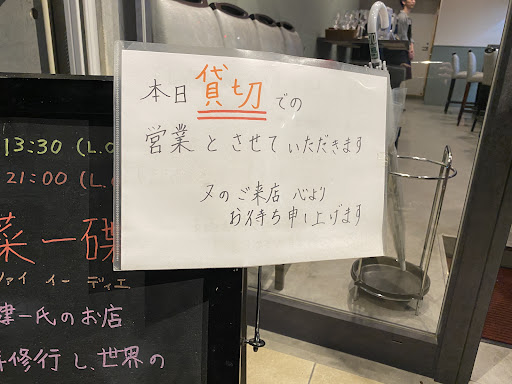 本日貸切での
営業とさせていただきます
又のご来店 心より
お待ち申し上げます
13:30 (L.O
21:00 (L.
菜一碟
ァイ イー ディエ
津一氏のお店
修行し、世界の